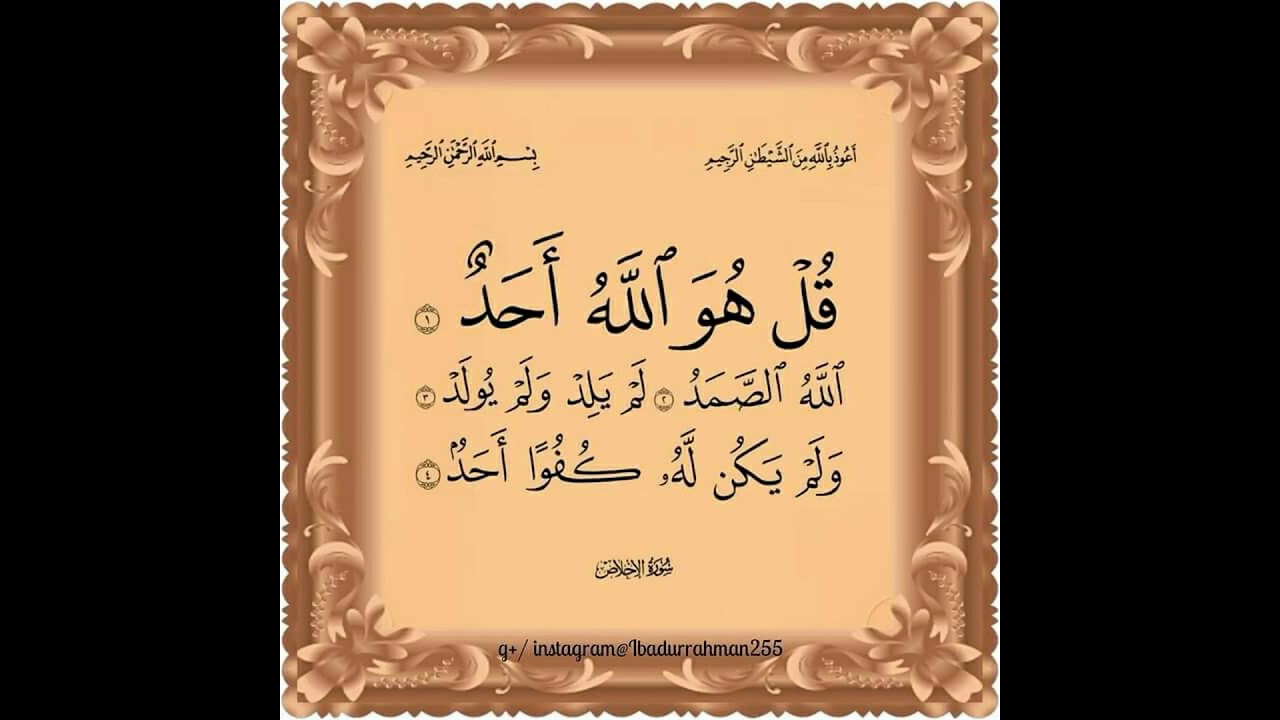 أَعُوذُ بِٱللَّهِ مِنَ ٱلشَّيْطَٰنِ ٱلرَّجِيمِ بِسْمِ ٱللَّهِ ٱلرَّحْمَٰنِ ٱلرَّحِيمِ
قُلْ هُوَ ٱللَّهُ أَحَدٌ ١
ٱللَّهُ ٱلصَّمَدُ ٢ لَمْ يَلِدْ وَلَمْ يُولَدْ ٣
وَلَمْ يَكُن لَّهُۥ كُفُوًا أَحَدٌۢ ٤
سُورَةُ الإِخْلَاصِ
g+/ instagram@Ibadurrahman255